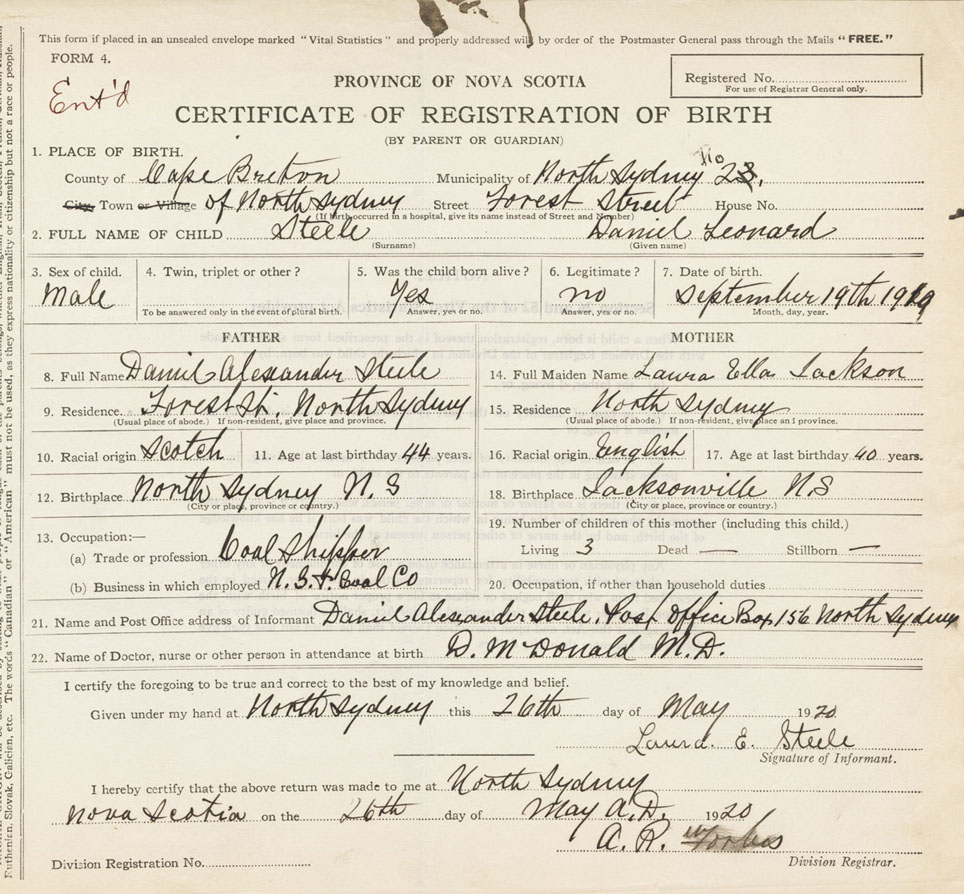 This form if placed in an unsealed envelope marked "Vital Statistics" and properly addressed will by order of the Postmaster General pass through the Mails "FREE."
FORM 4.
Ent'd
PROVINCE OF NOVA SCOTIA
Registered No.
For use of Registrar General only.
CERTIFICATE OF REGISTRATION OF BIRTH
(BY PARENT OR GUARDIAN)
1. PLACE OF BIRTH.
County of Cape Breton Municipality of North Sydney No
City, Town or Village of North Sydney Street Forest Street House No.
(If birth occurred in a hospital, give its name instead of Street and Number)
2. FULL NAME OF CHILD Steele Daniel Leonard
(Surname) (Given name)
3. Sex of child. 4. Twin, triplet or other? 5. Was the child born alive? 6. Legitimate? 7. Date of birth.
Male Yes no September 19th 1919
To be answered only in the event of plural birth. Answer, yes or no. Answer, yes or no. Month, day, year.
FATHER MOTHER
8. Full Name Daniel Alexander Steele 14. Full Maiden Name Laura Ella Jackson
9. Residence. Forest St. North Sydney 15. Residence North Sydney
(Usual place of abode.) If non-resident, give place and province. (Usual place of abode.) If non-resident, give place an l province.
10. Racial origin Scotch 11. Age at last birthday 44 years. 16. Racial origin English 17. Age at last birthday 40 years.
12. Birthplace North Sydney N.S 18. Birthplace Jacksonville NS
(City or place, province or country.) (City or place, province or country.)
13. Occupation:— 19. Number of children of this mother (including this child.)
(a) Trade or profession Coal Shipper Living 3 Dead — Stillborn —
(b) Business in which employed N.S.+ Coal Co 20. Occupation, if other than household duties
21. Name and Post Office address of Informant Daniel Alexander Steele, Post Office Box 156 North Sydney
22. Name of Doctor, nurse or other person in attendance at birth D. McDonald M.D.
I certify the foregoing to be true and correct to the best of my knowledge and belief.
Given under my hand at North Sydney this 26th day of May 1920
Laura. E. Steele
Signature of Informant.
I hereby certify that the above return was made to me at North Sydney
Nova Scotia on the 26th day of May A.D. 1920
A. R. Forbes
Division Registration No. Division Registrar.